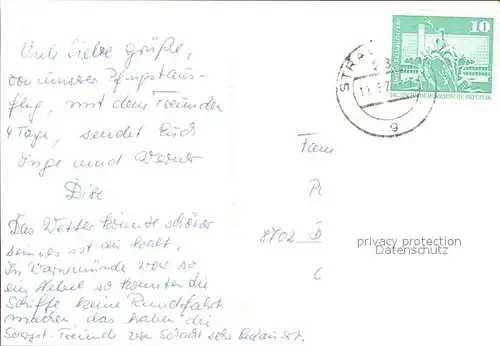 Viele Liebe Grüße,
von unserer Pfingstaus-
flug, mit dem Freunden
4 Tage, sendet Euch
Inge und Werner
Das Wetter könnte schöner
sein es ist zu kalt,
In Warnemünde war so
ein Nebel so konnten die
Schiffe keine Rundfahrt
machen, das haben die
Freunde von
10
DEUTSCHE DEMOKRATISCHE REPUBLIK
STRAL
9
Fam
8702
privacy protection
Datenschutz